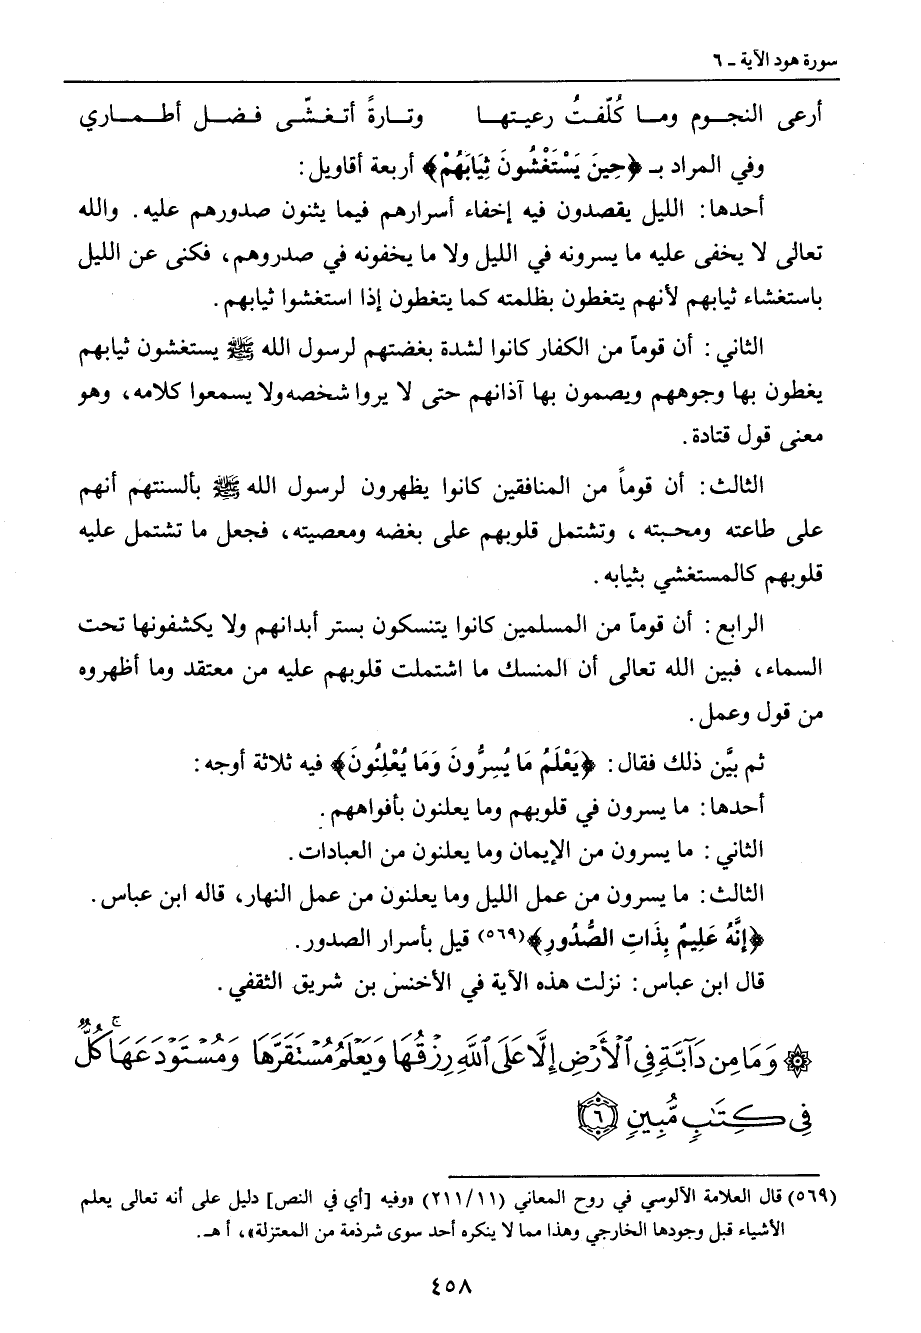 سورة هود الآية ـ ٦
أرعى النجـوم ومـا كُلّفتُ رعيتهـا وتـارةً أتغـشّى فضـل أطمـاري
وفي المراد بـ ﴿حِينَ يَسْتَغْشُونَ ثِيَابَهُمْ﴾ أربعة أقاويل:
أحدها: الليل يقصدون فيه إخفاء أسرارهم فيما يثنون صدورهم عليه. والله
تعالى لا يخفى عليه ما يسرونه في الليل ولا ما يخفونه في صدروهم، فكنى عن الليل
باستغشاء ثيابهم لأنهم يتغطون بظلمته كما يتغطون إذا استغشوا ثيابهم.
الثاني: أن قوماً من الكفار كانوا لشدة بغضتهم لرسول الله ﷺ يستغشون ثيابهم
يغطون بها وجوههم ويصمون بها آذانهم حتى لا يروا شخصه ولا يسمعوا كلامه، وهو
معنى قول قتادة.
الثالث: أن قوماً من المنافقين كانوا يظهرون لرسول الله ﷺ بألسنتهم أنهم
على طاعته ومحبته، وتشتمل قلوبهم على بغضه ومعصيته، فجعل ما تشتمل عليه
قلوبهم كالمستغشي بثيابه.
الرابع: أن قوماً من المسلمين كانوا يتنسكون بستر أبدانهم ولا يكشفونها تحت
السماء، فبين الله تعالى أن المنسك ما اشتملت قلوبهم عليه من معتقد وما أظهروه
من قول وعمل.
ثم بيَّن ذلك فقال: ﴿يَعْلَمُ مَا يُسِرُّونَ وَمَا يُعْلِنُونَ﴾ فيه ثلاثة أوجه:
أحدها: ما يسرون في قلوبهم وما يعلنون بأفواههم.
الثاني: ما يسرون من الإيمان وما يعلنون من العبادات.
الثالث: ما يسرون من عمل الليل وما يعلنون من عمل النهار، قاله ابن عباس.
﴿إِنَّهُ عَلِيمٌ بِذَاتِ الصُّدُورِ﴾(٥٦٩) قيل بأسرار الصدور.
قال ابن عباس: نزلت هذه الآية في الأخنس بن شريق الثقفي.
۞ وَمَا مِن دَآبَّةٍ فِى ٱلْأَرْضِ إِلَّا عَلَى ٱللَّهِ رِزْقُهَا وَيَعْلَمُ مُسْتَقَرَّهَا وَمُسْتَوْدَعَهَا ۚ كُلٌّ
فِى كِتَٰبٍ مُّبِينٍ ٦
(٥٦٩) قال العلامة الآلوسي في روح المعاني (٢١١/١١) «وفيه [أي في النص] دليل على أنه تعالى يعلم
الأشياء قبل وجودها الخارجي وهذا مما لا ينكره أحد سوى شرذمة من المعتزلة»، أ هـ.
٤٥٨